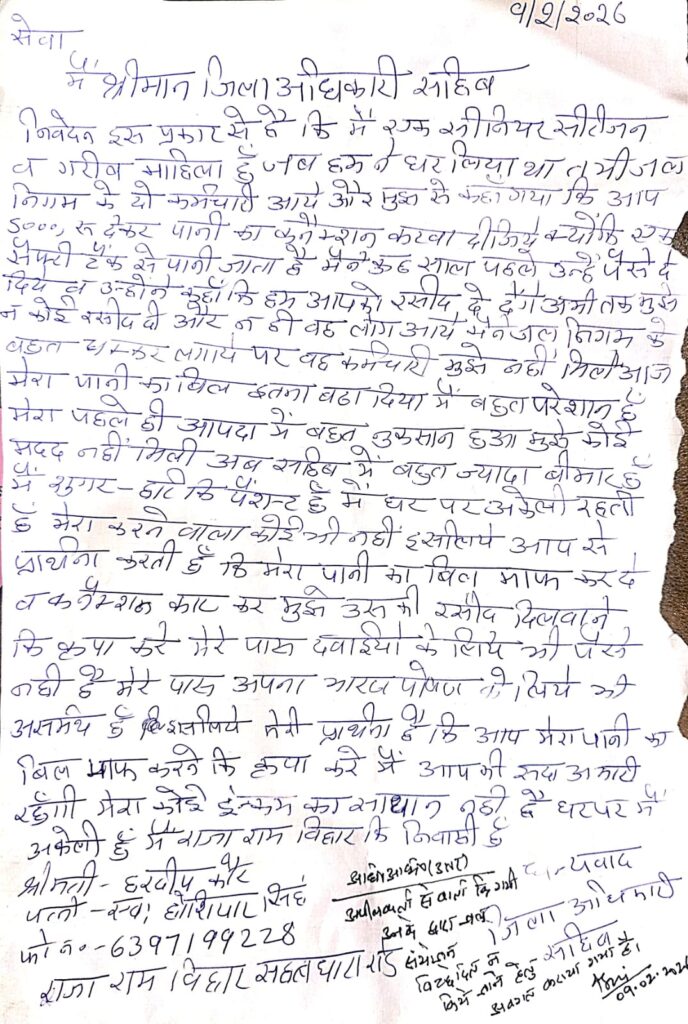 9/2/2026
सेवा
में श्रीमान जिला अधिकारी साहिब
निवेदन इस प्रकार से है कि मैं एक सीनियर सीटीजन
व गरीब माहिला हूँ जब हम ने घर लिया था तभी जल
निगम के दो कर्मचारी आये और मुझ से कहाँ गया कि आप
5000, रू देकर पानी का कनैक्शन करवा दीजिये क्योंकि एक
सैफ्टी टैंक से पानी जाता है मैने कुछ साल पहले उन्हें पैसे दे
दिये उन्होने कहाँ कि हम आपको रसीद दे देंगे अभी तक मुझे
न कोई रसीद दी और न ही वह लोग आये मैने जल निगम के
बहुत चक्कर लगाये पर वह कर्मचारी मुझे नहीं मिले आज
मेरा पानी का बिल इतना बढा दिया मैं बहुत परेशान हूँ
मेरा पहले ही आपदा में बहुत नुकसान हुआ मुझे कोई
मदद नहीं मिली अब साहिब मैं बहुत ज्यादा बीमार हूँ
मैं शुगर - हार्ट कि पैशन्ट हूँ मैं घर पर अकेली रहती
हूँ मेरा करने वाला कोई भी नहीं इसलिये आप से
प्रार्थना करती हूँ कि मेरा पानी का बिल माफ कर दे
व कनैक्शन काट कर मुझे उस की रसीद दिलवाने
कि कृपा करे मेरे पास दवाईयो के लिये भी पैसे
नही है मेरे पास अपना भरण पोषण के लिये भी
असमर्थ हूँ इसलिये मेरी प्रार्थना है कि आप मेरा पानी का
बिल माफ करने कि कृपा करे मैं आप की सदा अभारी
रहूँगी मेरा कोई इन्कम का साधान नही है घर पर मैं
अकेली हूँ मैं राजा राम विहार कि निवासी हूँ
श्रीमती - हरदीप कौर
पत्नी - स्व: होशियार सिंह
फो न० - 6397199228
राजा राम विहार सहस्त्रधारा रोड
धन्यवाद
जिला अधिकारी
साहिब
09.02.2026